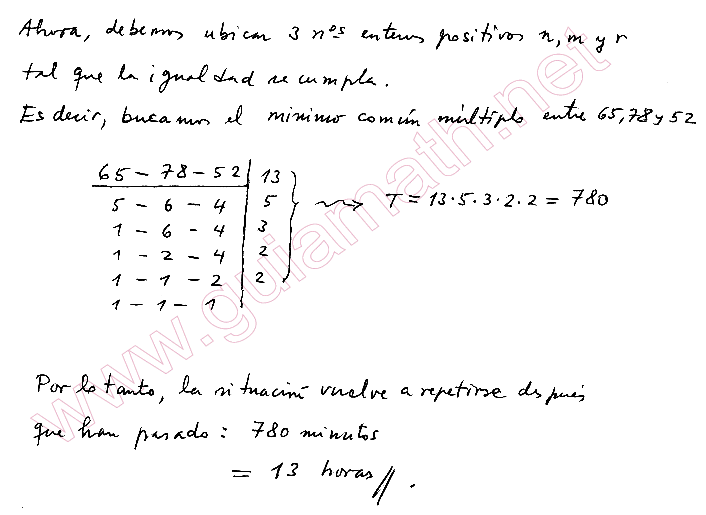 Ahora, debemos ubicar 3 nºs enteros positivos n, m y r
tal que la igualdad se cumpla.
Es decir, buscamos el mínimo común múltiplo entre 65, 78 y 52
65 - 78 - 52 | 13
5 - 6 - 4 | 5
1 - 6 - 4 | 3
1 - 2 - 4 | 2
1 - 1 - 2 | 2
1 - 1 - 1
T = 13·5·3·2·2 = 780
Por lo tanto, la situación vuelve a repetirse después
que han pasado: 780 minutos
= 13 horas//.
www.guiamath.net